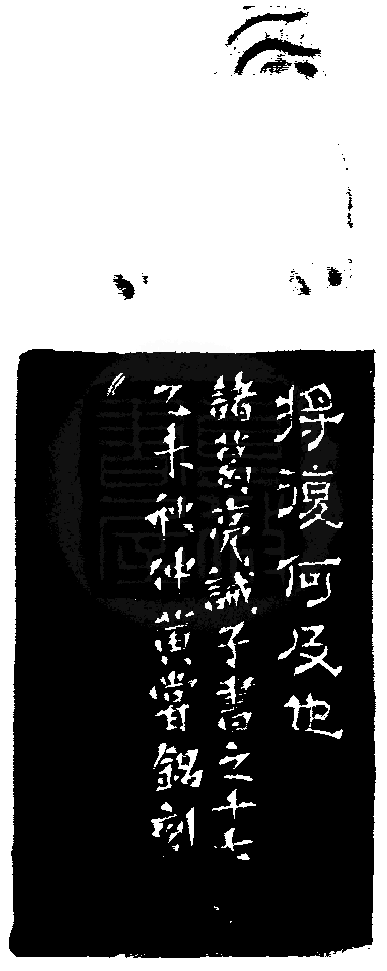 将復何及也
諸葛亮誡子書之十七
乙未秋仲黄嘗銘刻